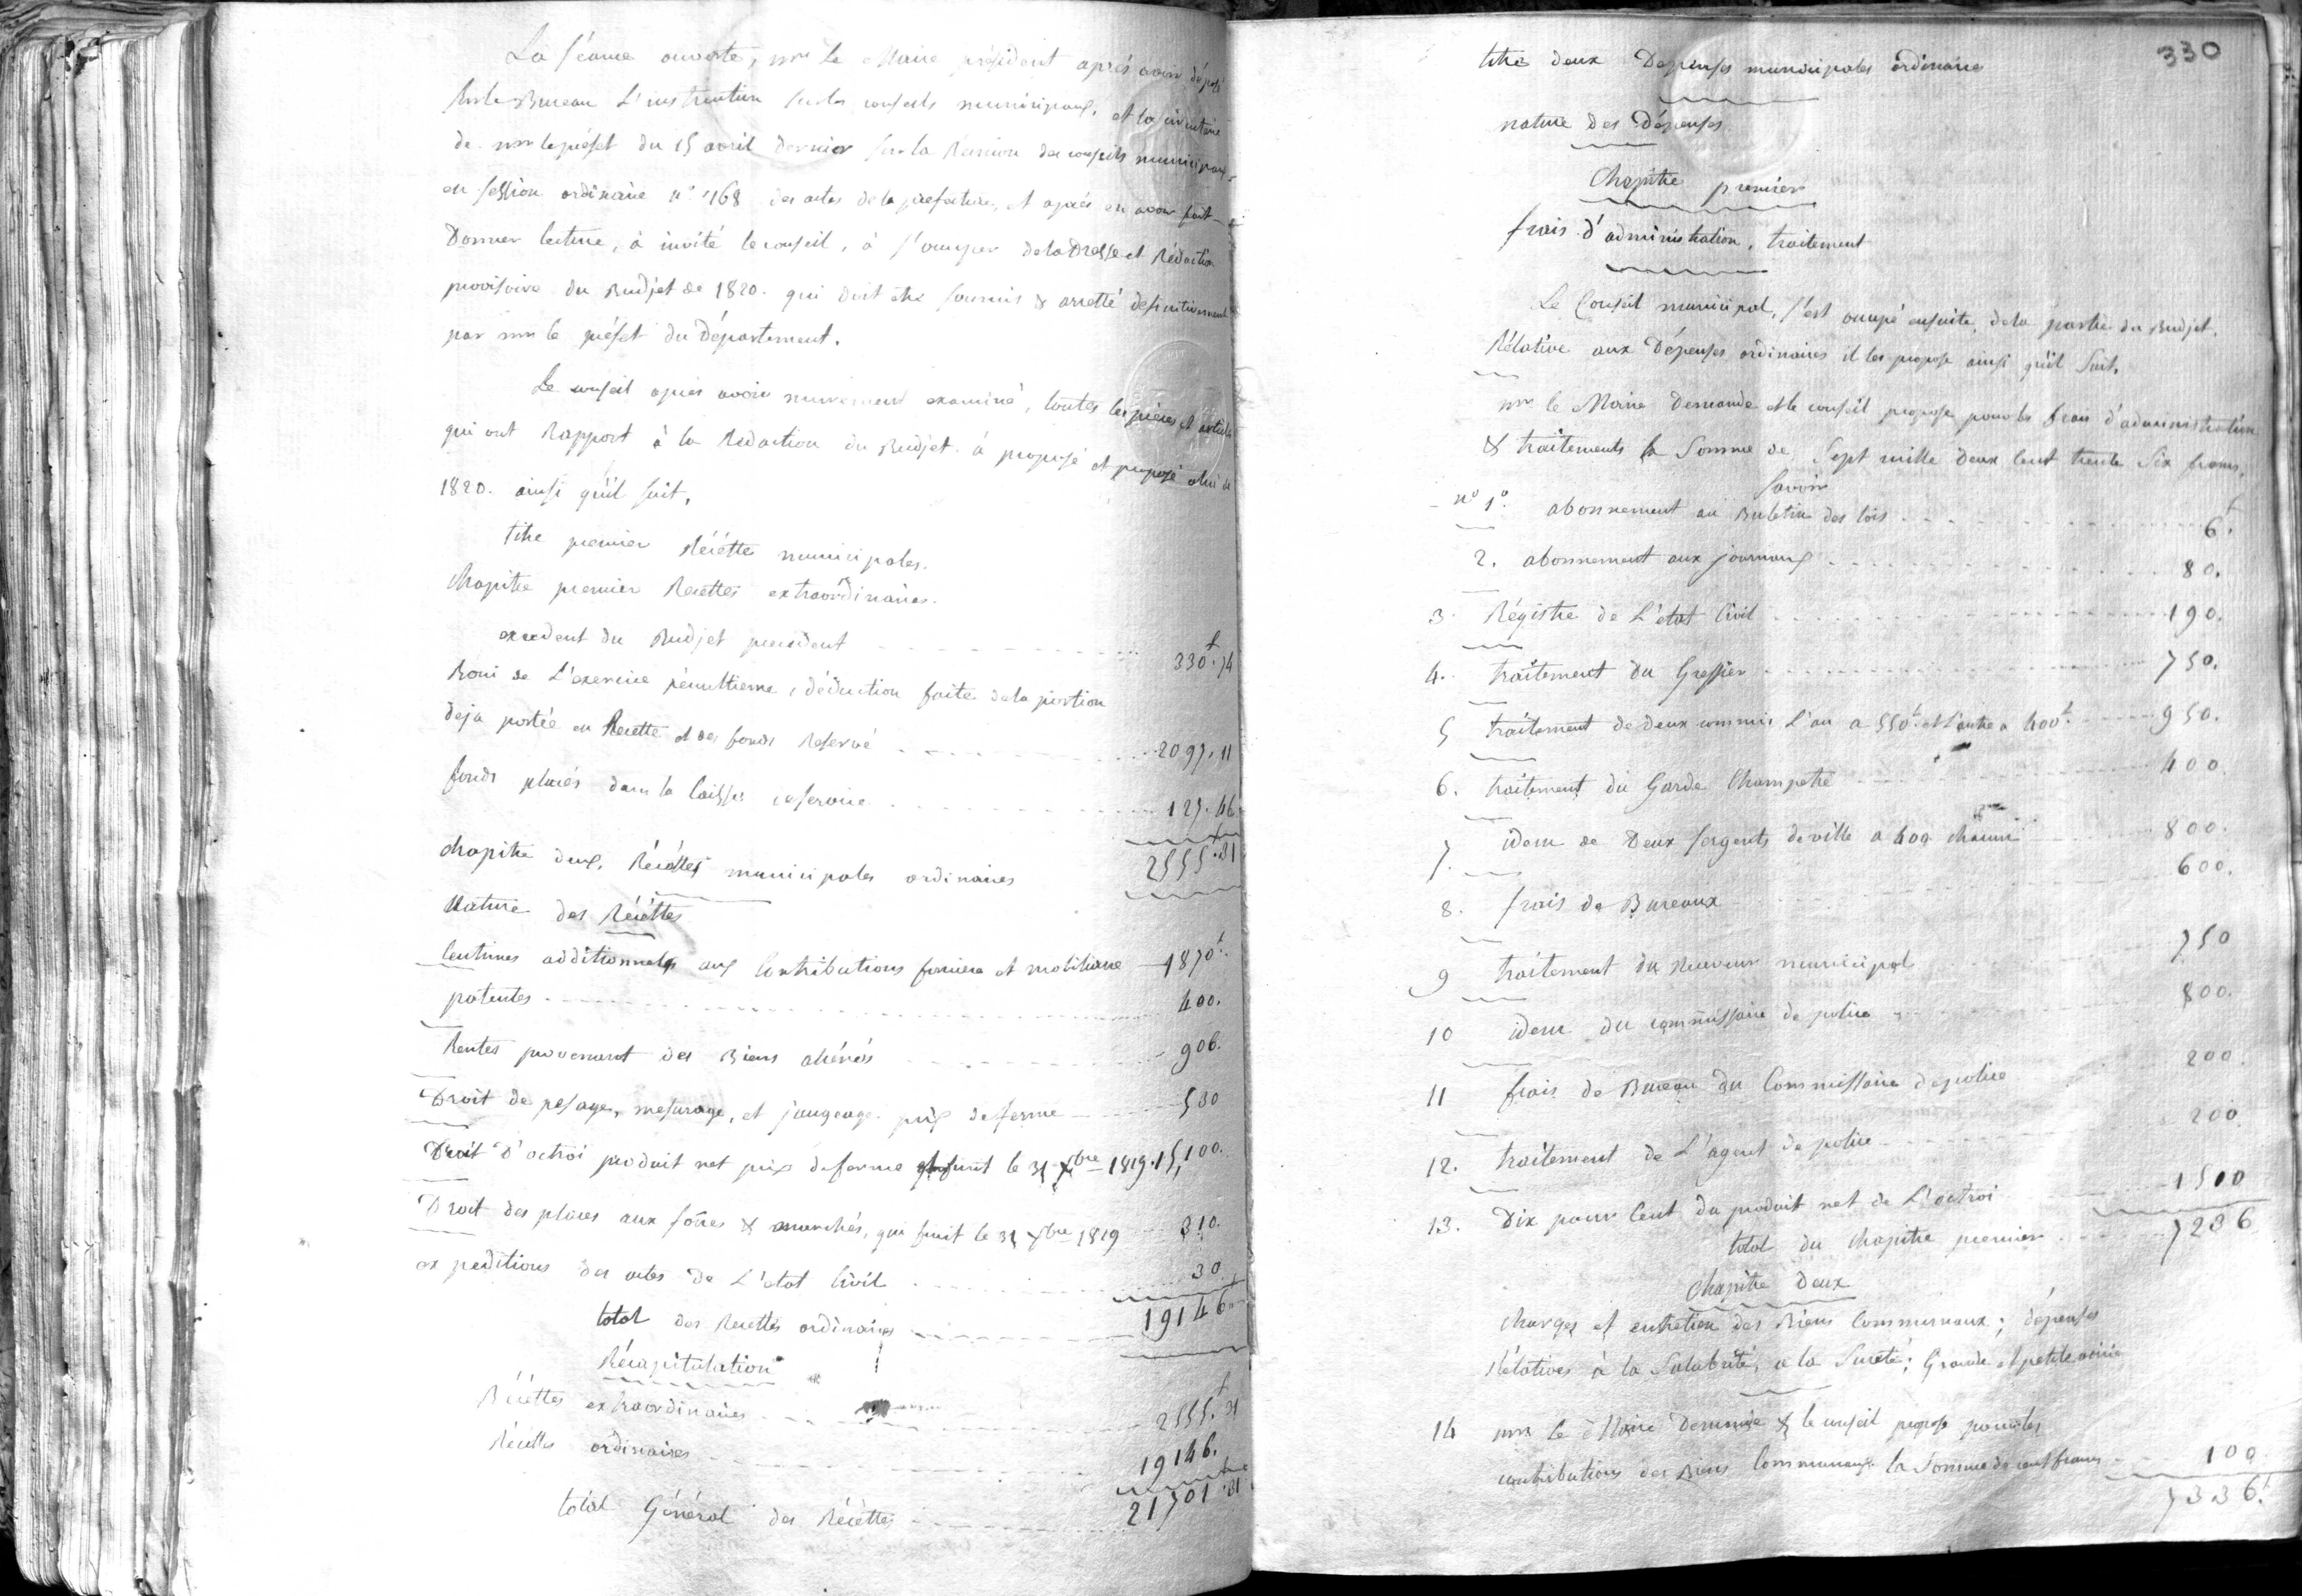 La séance ouverte, mr le Maire président après avoir déposé
sur le Bureau L'instruction sur les conseils municipaux, et la circulaire
de mr le préfet du 15 avril dernier sur la Réunion des conseils municipaux
en session ordinaire n° 168 des actes de la prefecture, et après en avoir fait
Donner lecture, à invité le conseil, à s'occuper de la Dresse et Rédaction
provisoire du Budjet de 1820. qui doit etre soumis & arretté definitivement
par mr le préfet du Département.
Le conseil après avoir murement examiné, toutes les pièces et articles
qui ont Rapport à la Redaction du Budjet à proposé et propose celui de
1820. ainsi qu'il suit,
titre premier Récétte municipales.
Chapitre premier Recettes extraordinaires.
excedent du Budjet precedent 330f.74
Boni de L'exercice pénultieme, déduction faite de la portion
deja portée en Recette et des fonds Reservé 2097.11
fonds placés dans la Caisse 127.46
chapitre deux, Récéttes municipales ordinaires 2555f.31
Nature des Récéttes
Centimes additionnels aux Contributions fonciere et mobiliaire 1870f.
patentes 400.
Rentes provenant des Biens aliénés 906.
Droit de pesage, mesurage, et jaugeage prix de ferme 530
Droit D'octroi produit net prix de ferme finit le 31 Xbre 1819. 15,100.
Droit des places aux foires & marchés, qui finit le 31 Xbre 1819 310.
expeditions des actes de L'etat Civil 30
total des Recettes ordinaires 19146
Récapitulation
Récéttes extraordinaires 2555f.31
Récéttes ordinaires 19146.
total Général des Récéttes 21701f.31
330
titre deux Depenses municipales ordinaires
nature des Dépenses
Chapitre premier
frais d'administration, traitement
Le Conseil municipal, s'est occupé ensuite, de la partie du Budjet,
Rélative aux Dépenses ordinaires il les propose ainsi qu'il suit,
mr le Maire Demande et le conseil propose pour les frais d'administration
& traitements la Somme de Sept mille deux Cent trente Six francs,
Savoir
n° 1° abonnement au Buletin des lois 6f.
2. abonnement aux journaux 80.
3. Régistre de L'état Civil 190.
4. traitement du Greffier 750.
5 traitement de deux commis L'un a 550f. et L'autre a 400f. 950.
6. traitement du Garde Champetre 400
7. idem de Deux sergents de ville a 400 chacun 800.
8. frais de Bureaux 600.
9 traitement du Receveur municipal 750
10 idem du commissaire de police 800.
11 frais de Bureau du Commissaire de police 200
12. traitement de L'agent de police 200
13. Dix pour Cent du produit net de L'octroi 1510
total du chapitre premier 7236
Chapitre Deux
Charges et entretien des Biens Communaux; dépenses
Rélatives à la Salubrité, a la Sureté; Grande et petite voirie
14 mr le Maire Demande & le conseil propose pour les
contributions des Biens Communaux la Somme de cent francs 100
7336f.